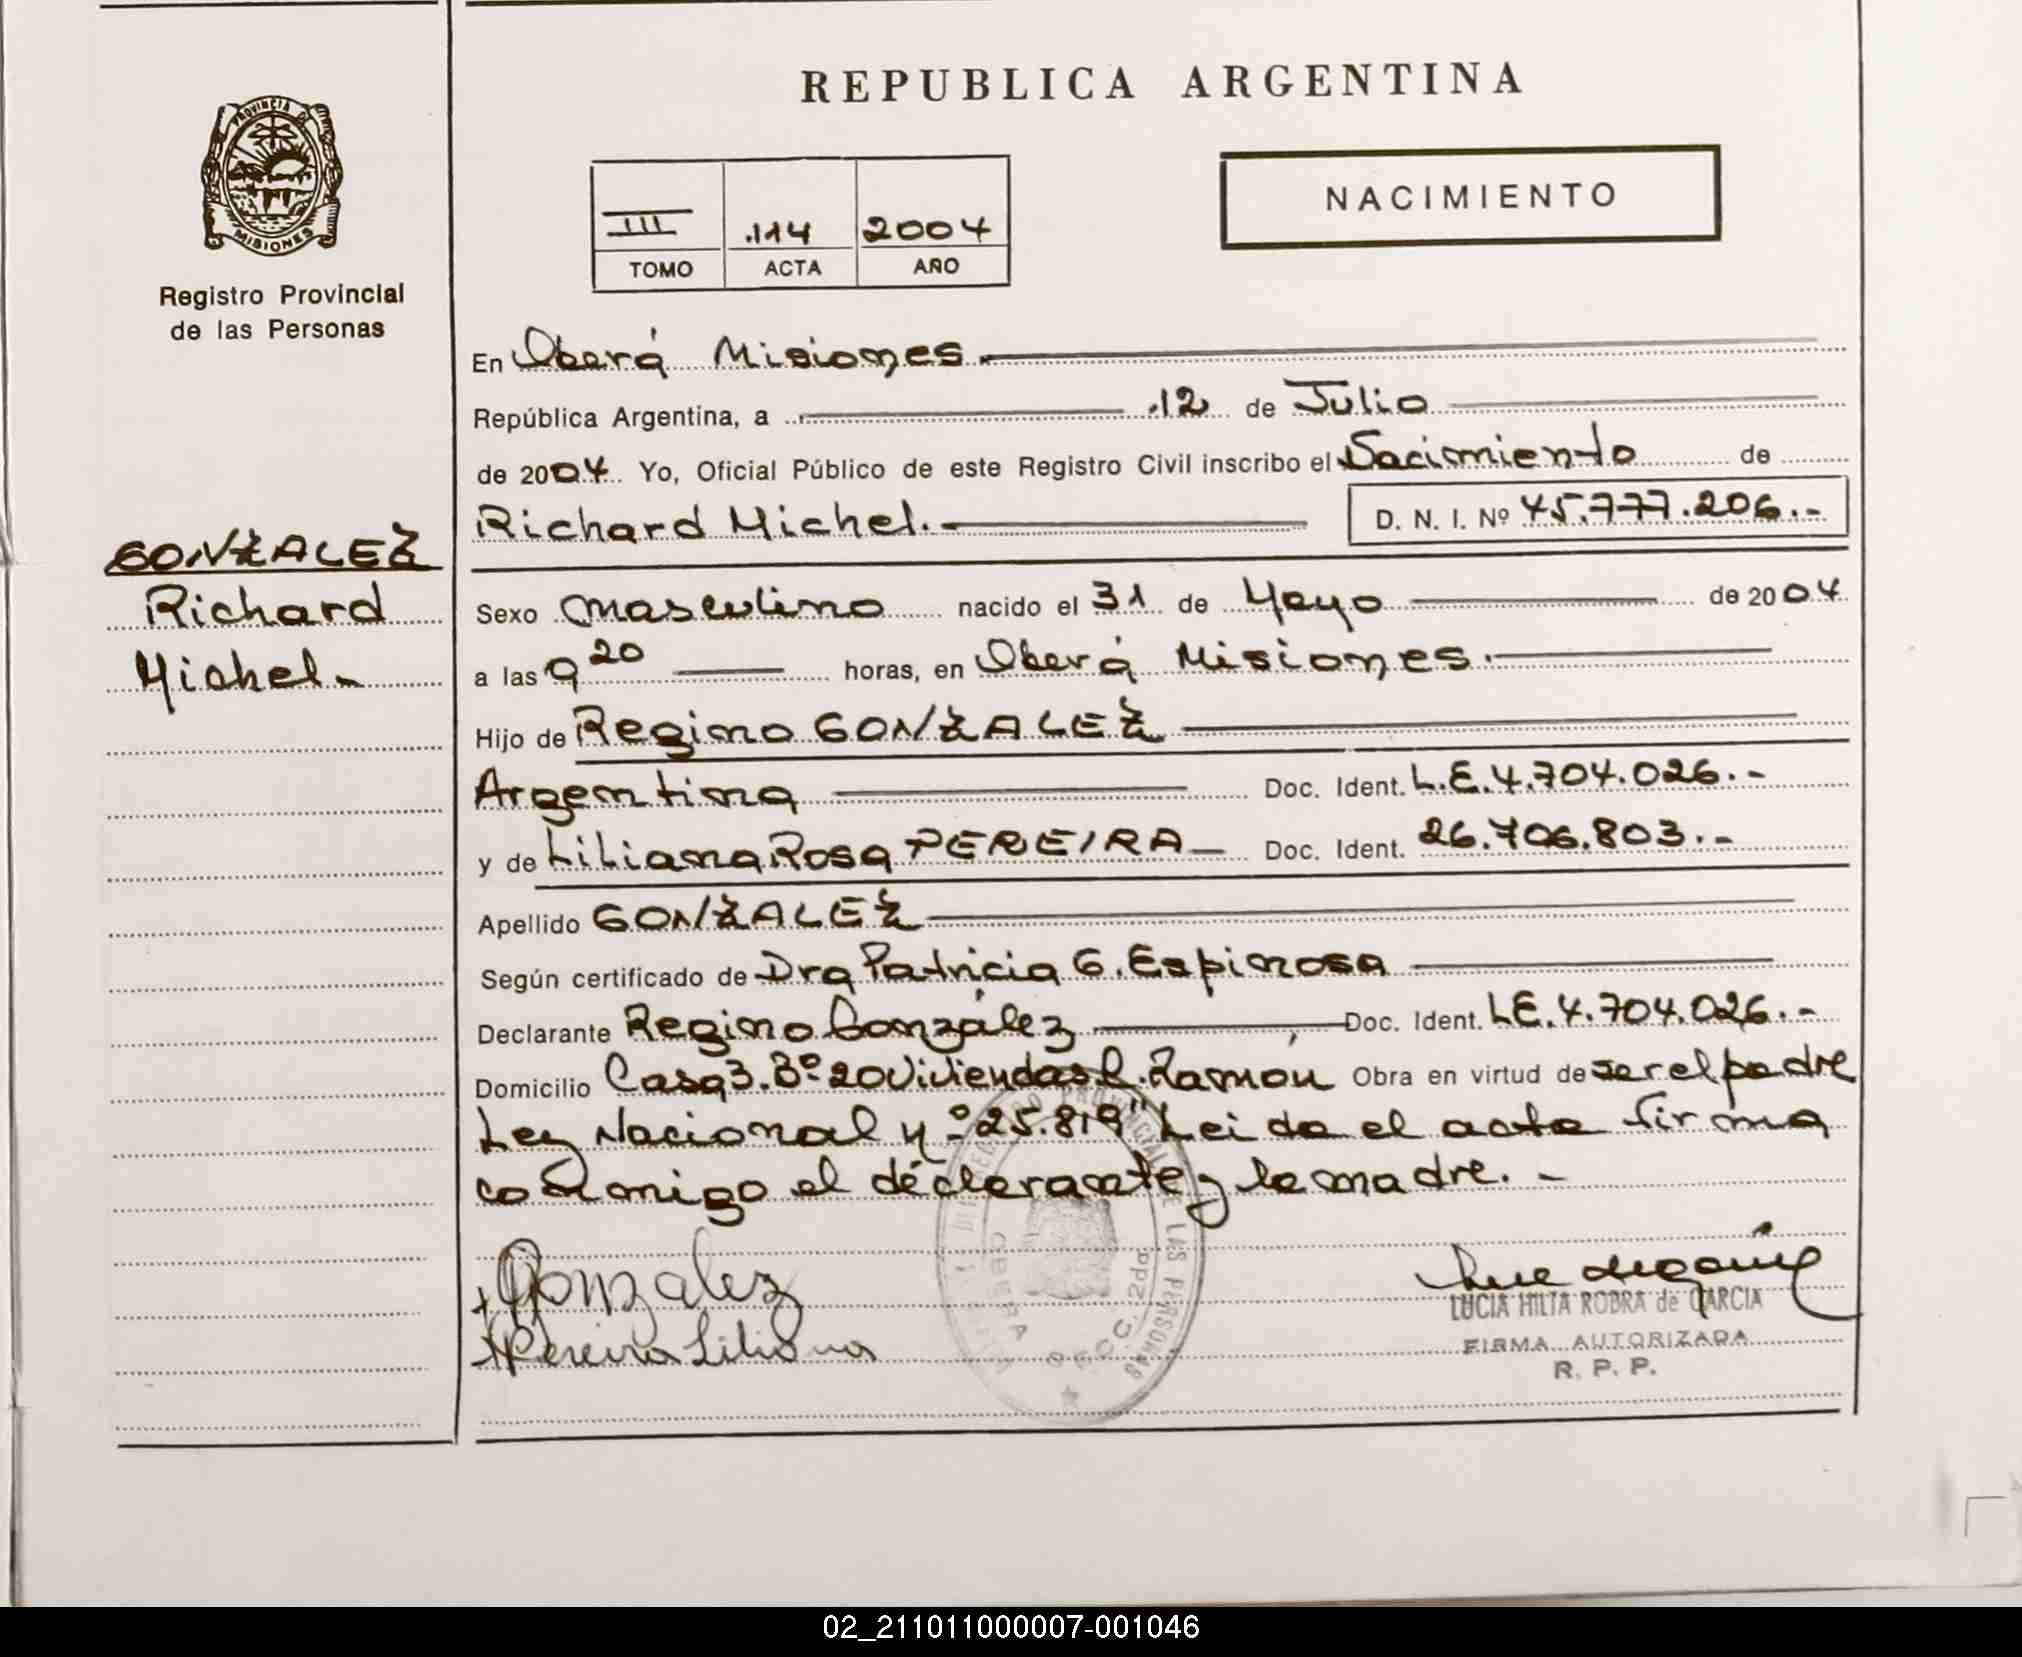 REPUBLICA ARGENTINA
PROVINCIA DE
MISIONES
Registro Provincial
de las Personas
III .114 2004
TOMO ACTA AÑO
NACIMIENTO
GONZALEZ
Richard
Michel.-
En Oberá Misiones.-
República Argentina, a 12 de Julio
de 2004. Yo, Oficial Público de este Registro Civil inscribo el Nacimiento de
Richard Michel.- D. N. I. Nº 45.777.206.-
Sexo masculino nacido el 31 de Mayo de 2004
a las 9 20 horas, en Oberá Misiones.-
Hijo de Regino GONZALEZ
Argentina Doc. Ident. L.E. 4.704.026.-
y de Liliana Rosa PEREIRA Doc. Ident. 26.706.803.-
Apellido GONZALEZ
Según certificado de Dra Patricia G. Espinosa
Declarante Regino González Doc. Ident. LE. 4.704.026.-
Domicilio Casa 3. Bº 20 Viviendas Ramón Obra en virtud de ser el padre
Ley Nacional Nº 25.819" Leida el acta firma
conmigo el declarante y la madre.-
Gonzalez
Pereira Liliana
PROVINCIAL DE LAS PERSONAS
OBERA SECC. 2da
LUCIA HILTA ROBRA de GARCIA
FIRMA AUTORIZADA
R. P. P.
02_211011000007-001046